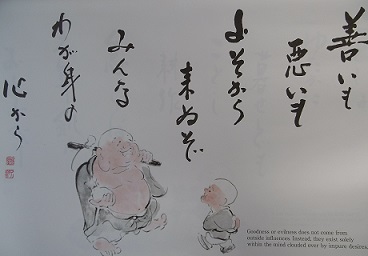 善いも
悪いも
よそから
来ぬぞ
みんな
わが身の
心から
Goodness or evilness does not come from
outside influences. Instead, they exist solely
within the mind clouded over by impure desires.